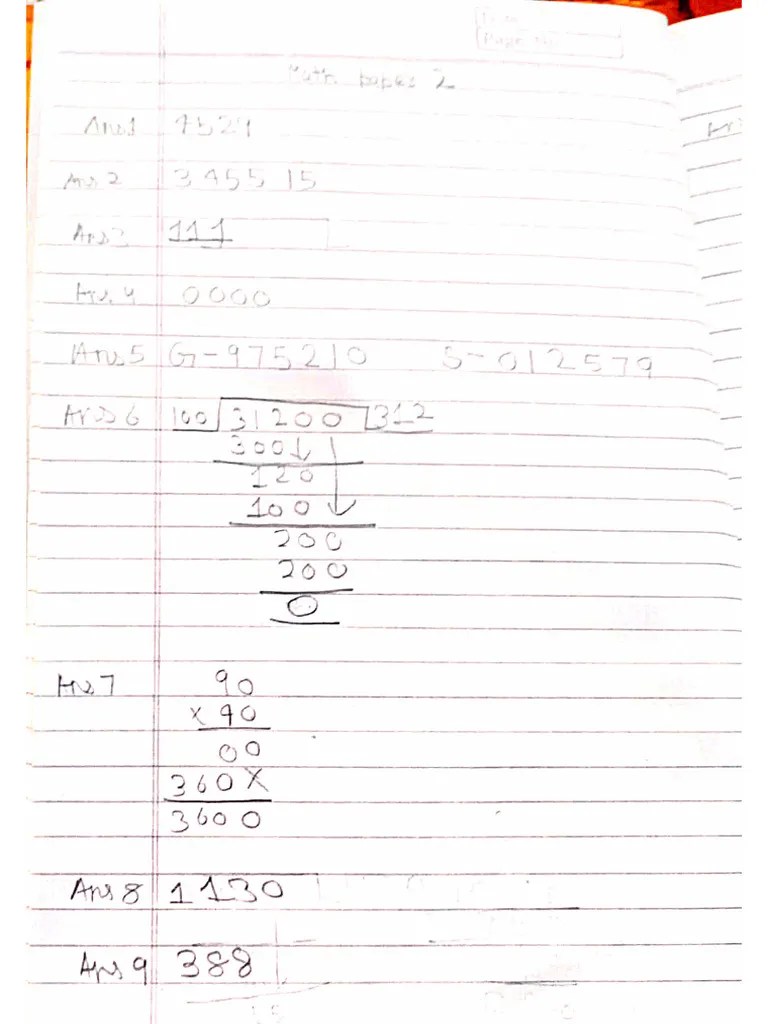 Page No
Math papes 2
Ans 1
Ans 2 345515
Ans 3 111
Ans 4 0000
Ans 5 G-975210 S-012579
Ans 6 100 31200 312
300
120
100
200
200
0
Ans 7 90
x 40
00
360X
3600
Ans 8 1130
Ans 9 388